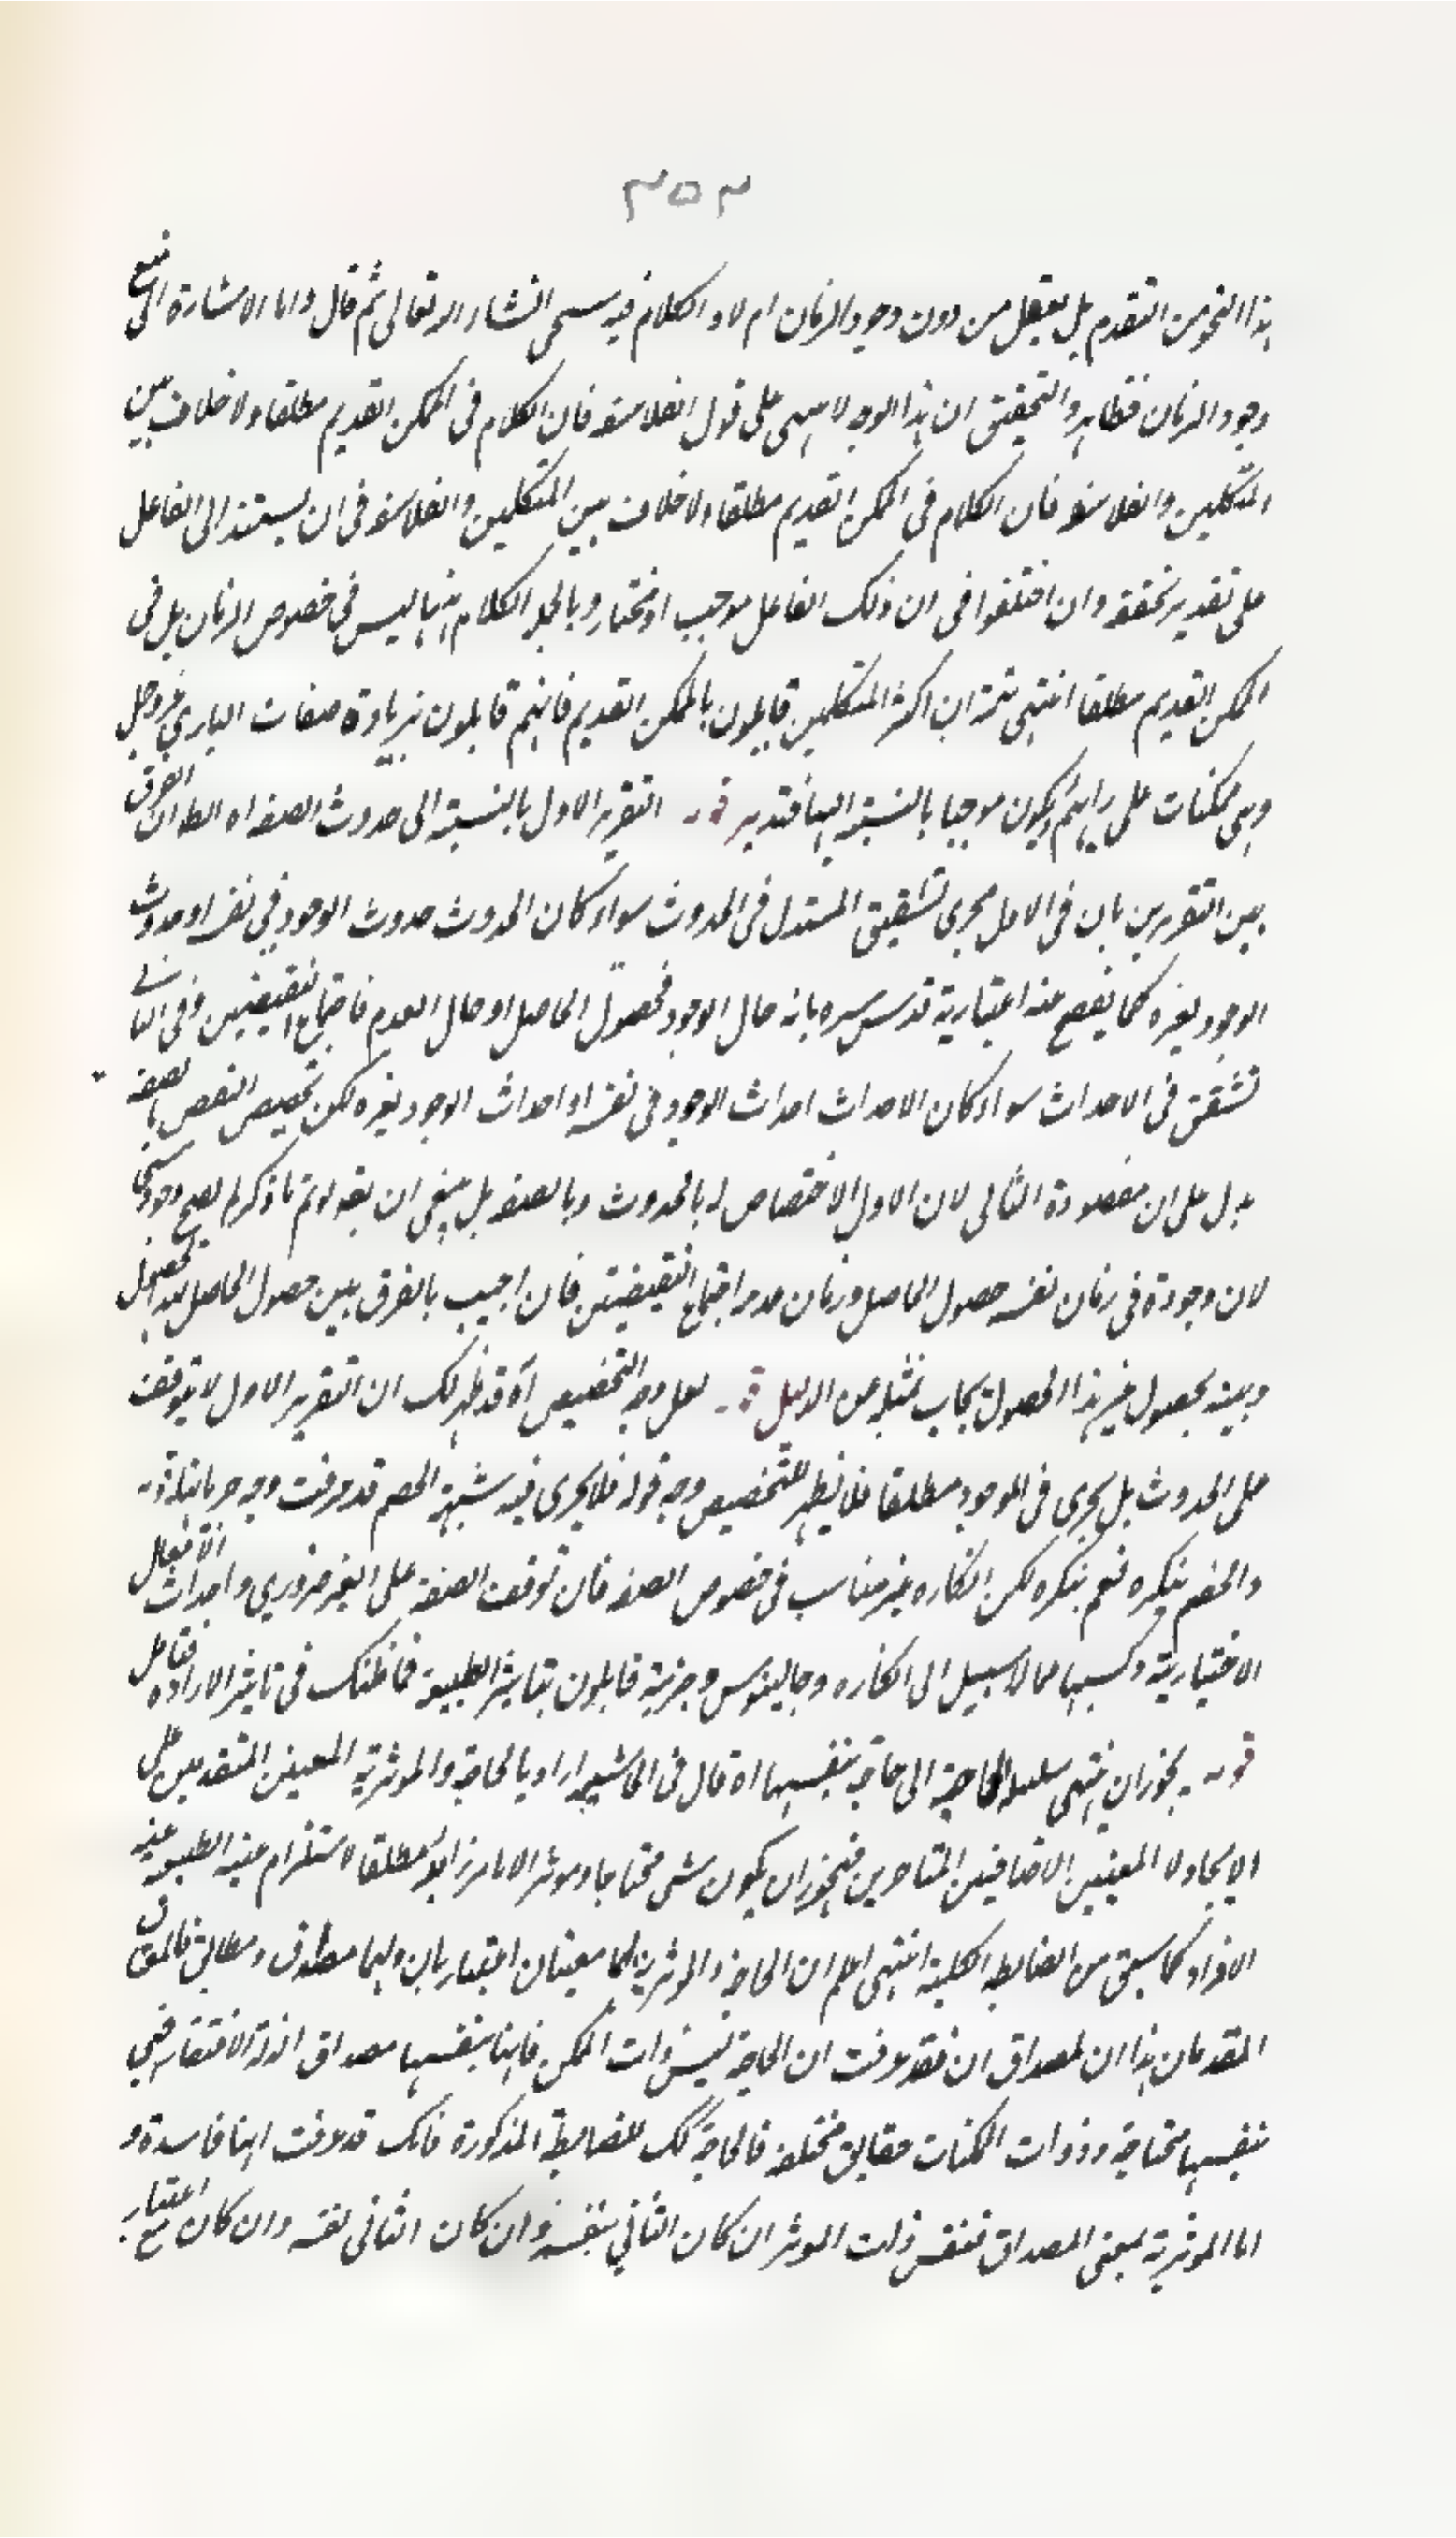 ٣٥٣
هذا النحو من التقدم بل يعقل من دون وجود الزمان ام لا و الكلام فيه سيجي انشاء الله تعالى ثم قال واما الاشارة الى منع
وجود الزمان فظاهر والتحقيق ان هذا الوجه لا يبتنى على قول الفلاسفة فان الكلام فى الممكن القديم مطلقا ولا خلاف بين
المتكلمين والفلاسفة فان الكلام فى الممكن القديم مطلقا ولا خلاف بين المتكلمين والفلاسفة فى ان يستند الى الفاعل
على تقدير تحققه وان اختلفوا فى ان ذلك الفاعل موجب او مختار وبالجملة الكلام ههنا ليس فى خصوص الزمان بل فى
الممكن القديم مطلقا انتهى ثم ان اكثر المتكلمين قايلون بالممكن القديم فانهم قايلون بزيادة صفات البارى عز وجل
وهى ممكنات على رايهم فيكون موجبا بالنسبة اليها فتدبر قوله التقرير الاول بالنسبة الى حدوث الصفة اه اعلم ان الفرق
بين التقريرين بان فى الاول يجرى تشقيق المستدل فى الحدوث سواء كان الحدوث حدوث الوجود فى نفسه او حدوث
الوجود لغيره كما يفصح عنه اعتباريه قدس سره بانه حال الوجود فحصول الحاصل او حال العدم فاجتماع النقيضين وفى الثانى
تشقق فى الاحداث سواء كان الاحداث احداث الوجود فى نفسه او احداث الوجود لغيره لكن تخصيص النقص بالصفة
يدل على ان مقصوده الثانى لان الاول لا اختصاص له بالحدوث وبالصفة بل ينبغى ان يقول لو تم ما ذكر لم يصح وجود شى
لان وجوده فى زمان نفسه حصول الحاصل وزمان عدمه اجتماع النقيضين فان اجيب بالفرق بين حصول الحاصل بهذا الحصول
وبينه بحصول غير هذا الحصول يجاب بمثله عن الدليل قوله لعل وجه التخصيص اه قد ظهر لك ان التقرير الاول لا يتوقف
على الحدوث بل يجرى فى الموجود مطلقا فلا يظهر للتخصيص وجه قوله فلا يجرى فيه شبهة الخصم قد عرفت وجه جريانها قوله
والخصم ينكره نعم ينكره لكن انكاره غير مناسب فى خصوص الصفة فان توقف الصفة على الغير ضرورى واحداث الافعال
الاختيارية وكسبها مما لا سبيل الى انكاره وجالينوس وحزبه قايلون بتاثير الطبيعة فما ظنك فى تاثير الارادة فتامل
قوله يجوز ان ينتهى سلسلة الحاجة الى حاجة بنفسها اه قال فى الحاشية اراد بالحاجة والموثرية المعنيين المتقدمين على
الايجاد لا المعنيين الاضافيين المتاخرين فيجوز ان يكون شى محتاجا وموثرا لا بامر زايد مطلقا لاستلزام عينية الطبيعة عينية
الافراد كما سبق من الضابطة الكلية انتهى اعلم ان الحاجة والموثرية لهما معنيان اعتباريان ولهما مصداق ومطابق فالمعنيان
المتقدمان هذا ان المصداق ان فقد عرفت ان الحاجة ليس ذات الممكن فانها بنفسها مصداق الحاجة الافتقار فهى
بنفسها محتاجة وذوات الممكنات حقايق مختلفة فالحاجة كك للضابطة المذكورة فانك قد عرفت انها فاسدة و
اما الموثرية بمعنى المصداق فنفس ذات الموثر ان كان الثانى بنفسه وان كان الثانى نفسه وان كان مع اعتبار